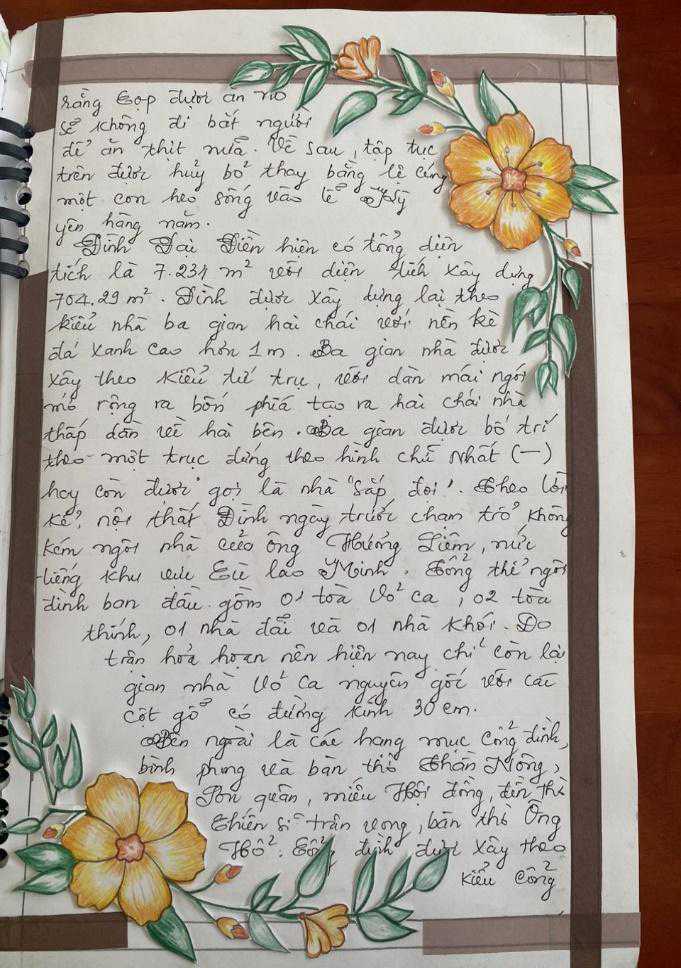 rằng cọp được ăn no
sẽ không đi bắt người
để ăn thịt nữa. Về sau, tập tục
trên được hủy bỏ thay bằng lệ cúng
một con heo sống vào lễ Kỳ
yên hằng năm.
Đình Đại Điền hiện có tổng diện
tích là 7.234 m² với diện tích xây dựng
704.29 m². Đình được xây dựng lại theo
kiểu nhà ba gian hai chái với nền kè
đá xanh cao hơn 1m. Ba gian nhà được
xây theo kiểu tứ trụ, với dàn mái ngói
mở rộng ra bốn phía tạo ra hai chái nhà
thấp dần về hai bên. Ba gian được bố trí
theo một trục đứng theo hình chữ Nhất (一)
hay còn được gọi là nhà "sắp đọi". Theo lời
kể, nội thất Đình ngày trước chạm trổ không
kém ngôi nhà của ông Hương Liêm, nức
tiếng khu vực Cù lao Minh. Tổng thể ngôi
đình ban đầu gồm 01 toà Võ ca, 02 tòa
thính, 01 nhà đãi và 01 nhà khói. Do
trận hỏa hoạn nên hiện nay chỉ còn lại
gian nhà Võ Ca nguyên gốc với các
cột gỗ có đường kính 30 cm.
Bên ngoài là các hạng mục cổng đình,
bình phong và bàn thờ Thần Nông,
Sơn quân, miếu Hội đồng, đền thờ
Chiến sĩ trận vong, bàn thờ Ông
Hổ. Cổng đình được xây theo
kiểu cổng